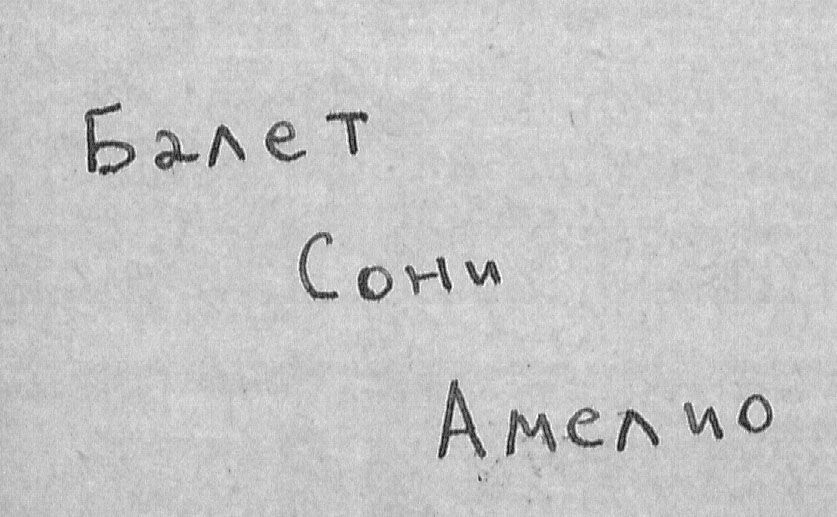 Балет
Сони
Амелио